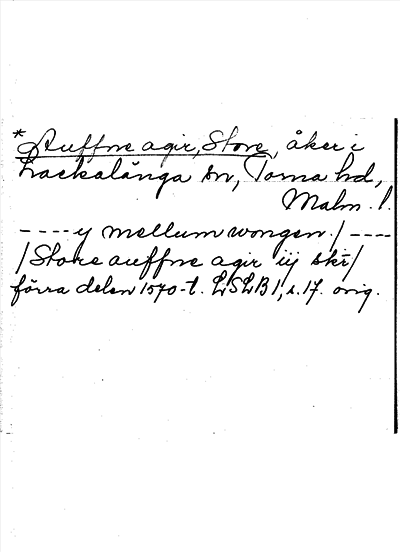 *Auffne agir, Store, åker i
Lackalänga sn, Torna hd,
Malm. l.
----y mellum wongen./----
/Store auffne agir iij skr/
förra delen 1570-t. LSLB 1, s. 17. orig.